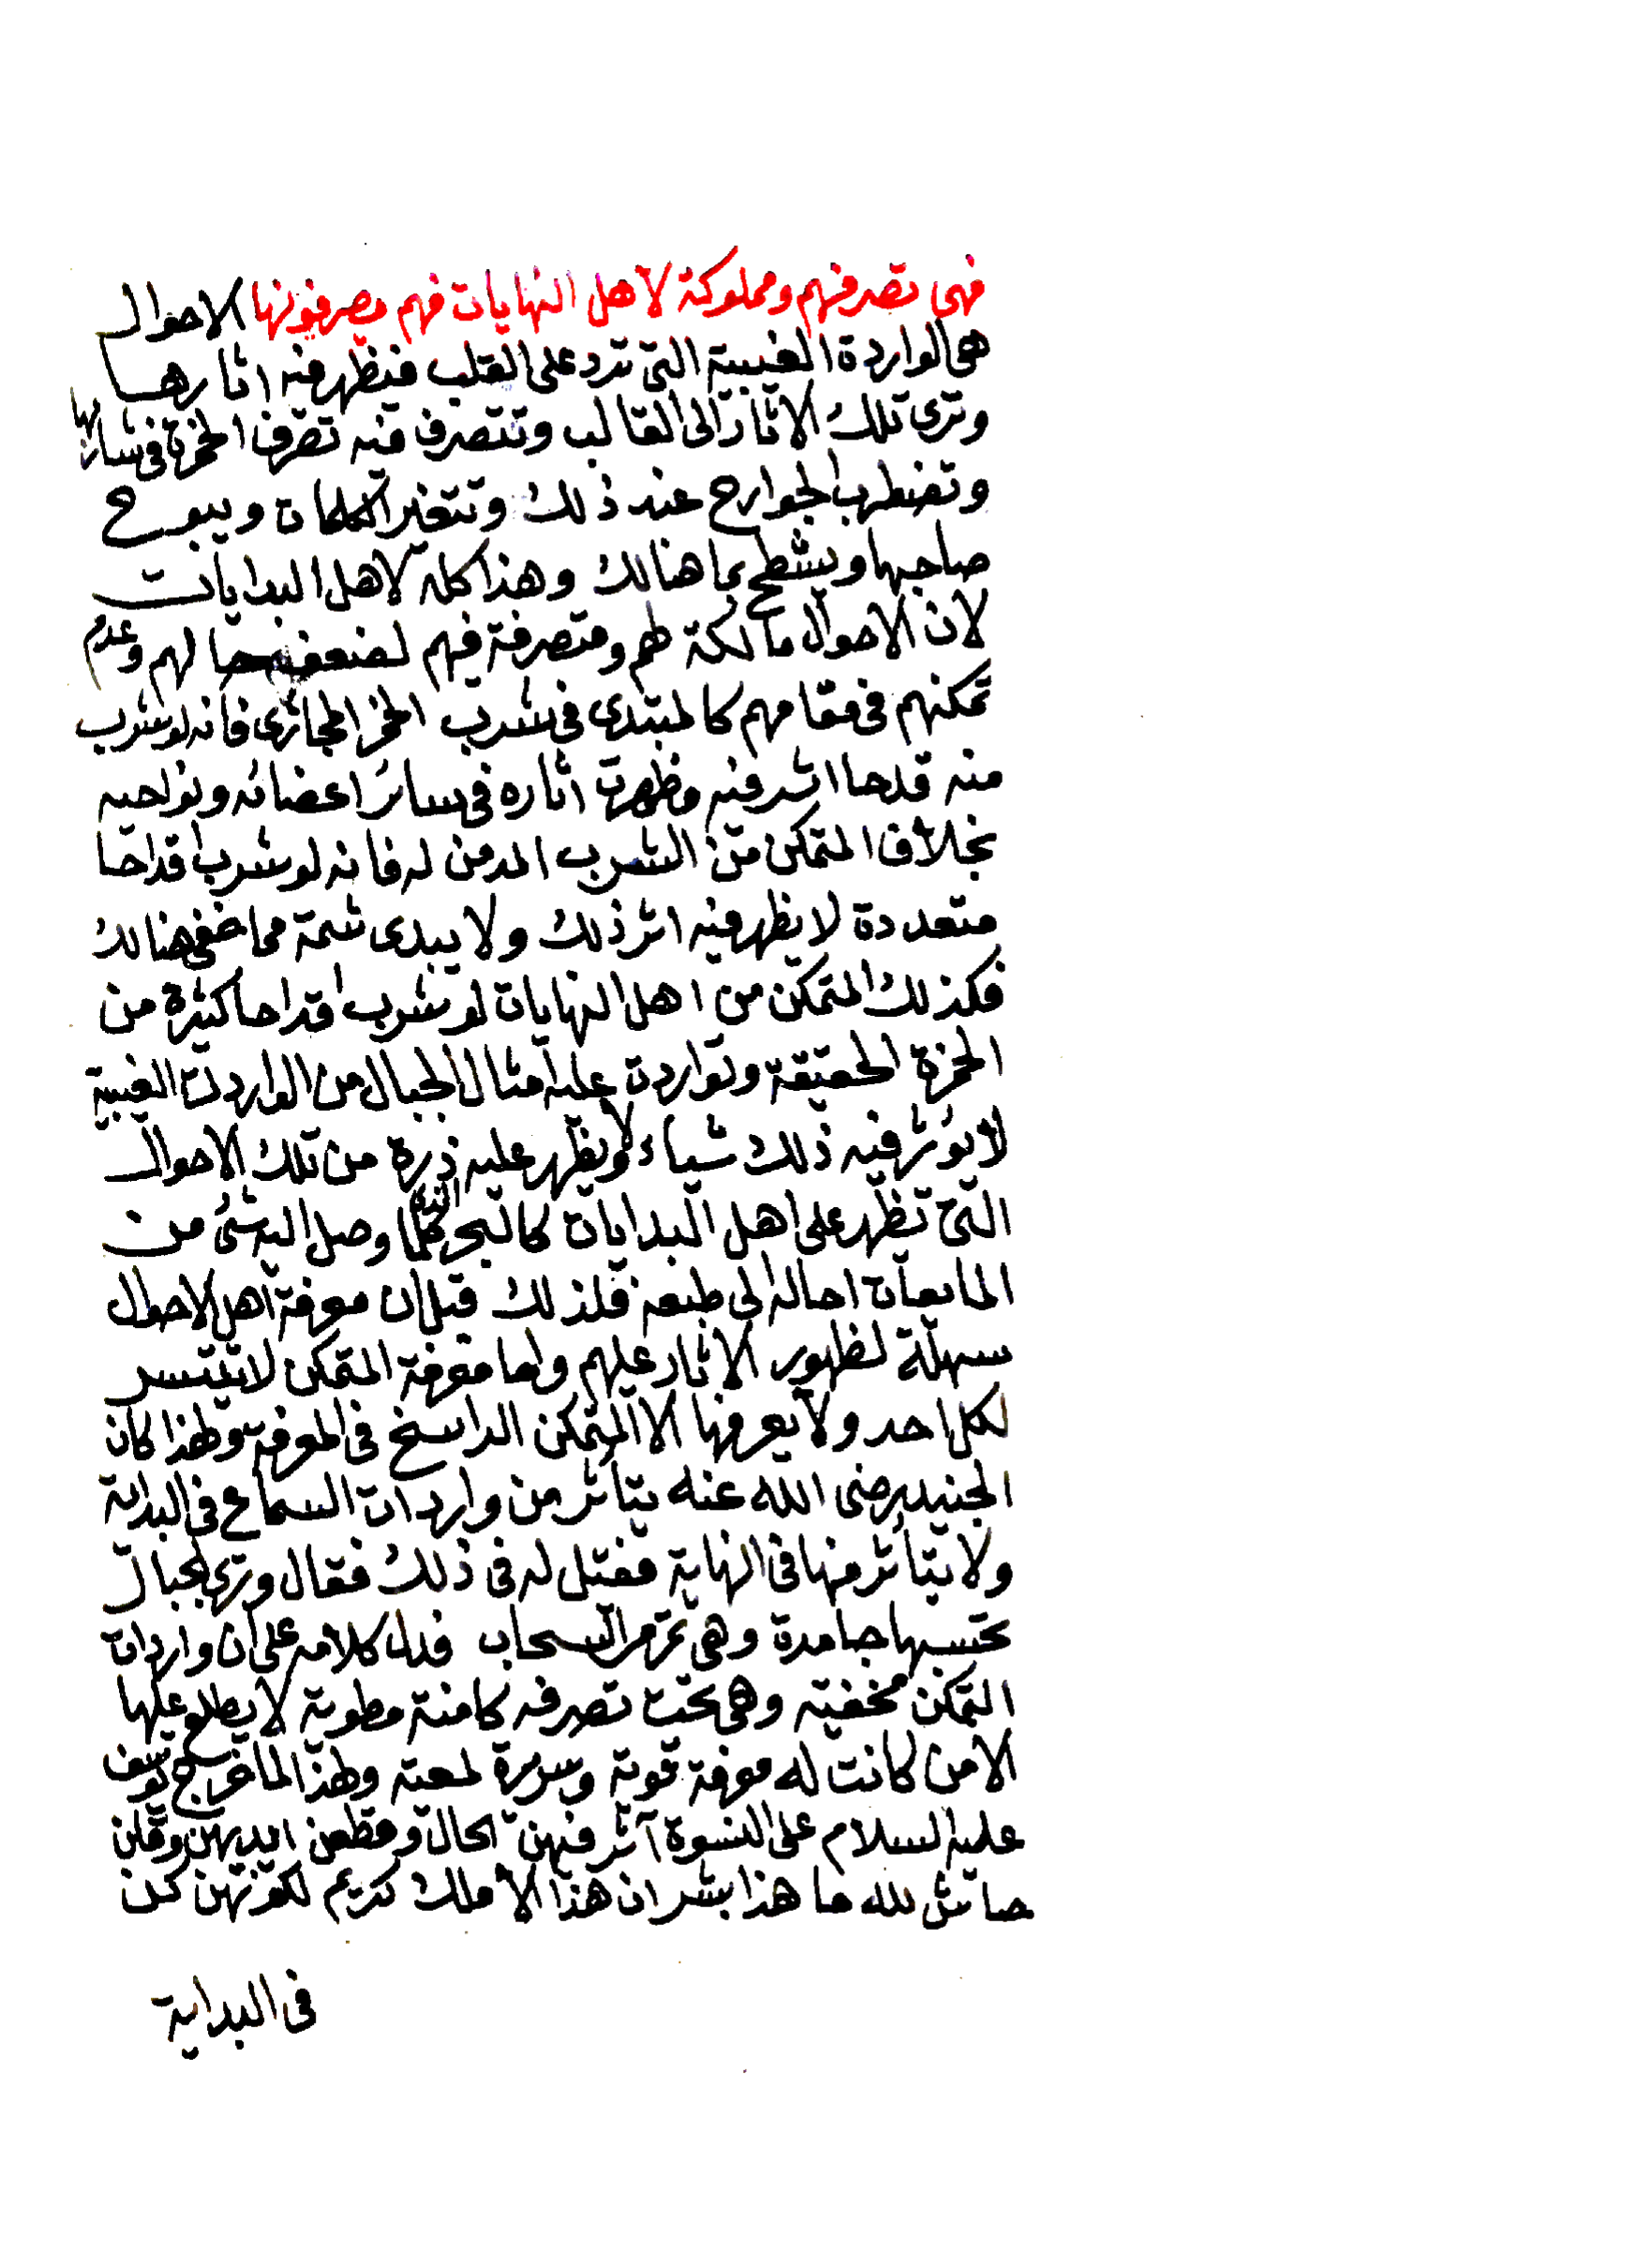 فهى تصرفهم ومملوكة لاهل النهايات فهم يصرفونها الاحوال
هى الواردة الغيبية التى ترد على القلب فيظهر فيه اثارها
وترى تلك الاثار الى القالب وتتصرف فيه تصرف الخمرة فى شاربها
وتضطرب الجوارح عند ذلك وتتغير الكلمات ويبوح
صاحبها ويشطح بما هنالك وهذا كله لاهل البدايات
لان الاحوال مالكة لهم ومتصرفة فيهم لضعف حالهم وعدم
تمكنهم فى مقامهم كالمبتدى فى شرب الخمر المجازى فانه لو شرب
منه قدحا اثر فيه وظهرت اثاره فى سائر اعضائه ونواحيه
بخلاف المتمكن من الشرب المدمن له فانه لو شرب اقداحا
متعددة لا يظهر فيه اثر ذلك ولا يبدى شمة مما خفى هنالك
فكذلك المتمكن من اهل النهايات لو شرب اقداحا كثيرة من
الخمرة الحقيقة وتواردة عليه امثال الجبال من الواردات الغيبية
لا يؤثر فيه ذلك شياء ولا يظهر عليه ذرة من تلك الاحوال
التى تظهر على اهل البدايات كالبحر الذى كلما وصل اليه شئ من
المايعات احاله الى طبعه فلذلك قيل ان معرفة اهل الاحوال
سهلة لظهور الاثار عليهم واما معرفة المتمكن لا تتيسر
لكل احد ولا يعرفها الا المتمكن الراسخ فى المعرفة ولهذا كان
الجنيد رضى الله عنه يتأثر من واردات السماع فى البداية
ولا يتأثر منها فى النهاية فقيل له فى ذلك فقال وترى الجبال
تحسبها جامدة وهى تمر مر السحاب فدل كلامه على ان واردات
التمكن مخفية وهى تحت تصرفه كامنة مطوية لا يطلع عليها
الا من كانت له معرفة قوية وسريرة لمعية ولهذا لما خرج يوسف
عليه السلام على النسوة آثر فيهن الحال وقطعن ايديهن وقلن
حاش لله ما هذا بشر ان هذا الا ملك كريم لكونهن كن
فى البداية